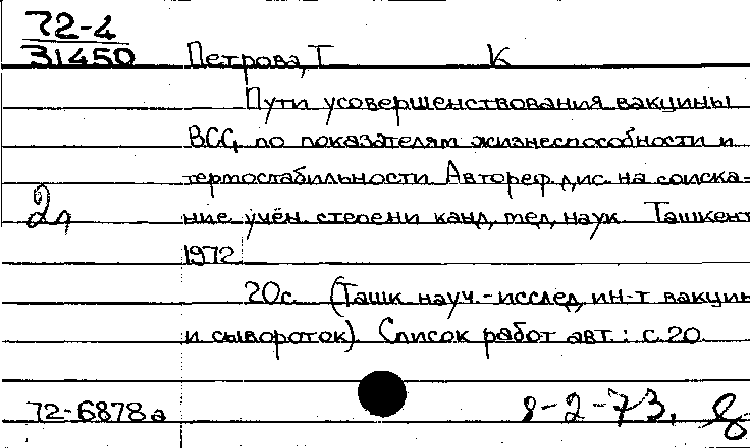 72-4
31450
Петрова, Т К
Пути усовершенствования вакцины
BCG по показателям жизнеспособности и
термостабильности Автореф дис. на соиска-
2л
ние учён. степени канд. мед. наук. Ташкент
1972
20с. (Ташк науч.-исслед. ин-т вакцин
и сывороток). Список работ авт.: с. 20
72-6878а
8-2-73.